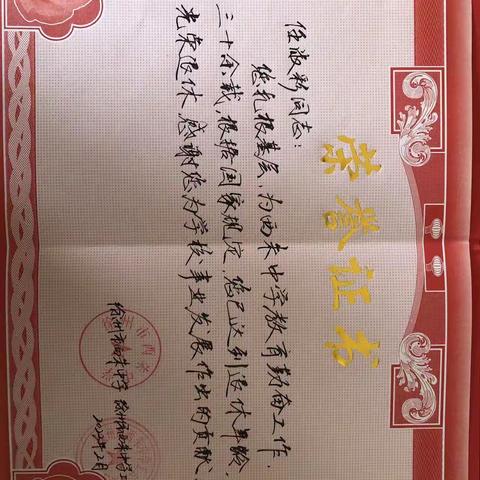 荣誉证书
任淑彩同志:
您扎根基层、为西朱中学教育勤奋工作.
三十余载,根据国家规定,您已达到退休年龄,
光荣退休.感谢您为学校事业发展作出的贡献.
徐州市西朱中学
2022年2月